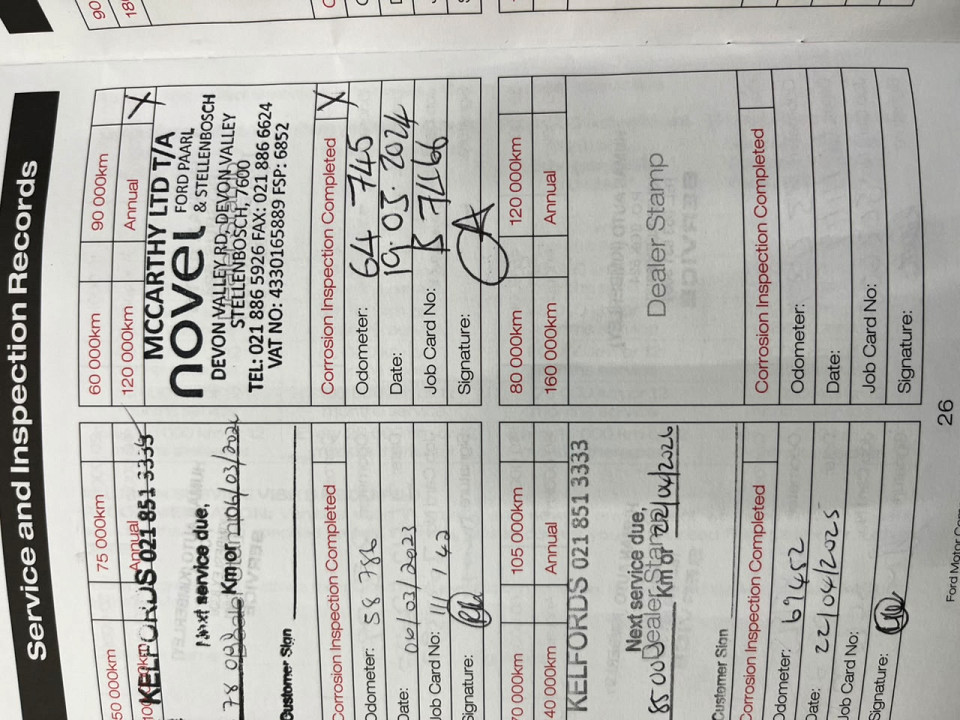 Service and Inspection Records
50 000km 75 000km
Annual
KELFORDS 021 851 3333
Next service due,
Km or 06/03/2024
Customer Sign
Corrosion Inspection Completed
Odometer: 58 786
Date: 06/03/2023
Job Card No: 111 142
Signature:
60 000km 90 000km
120 000km Annual X
MCCARTHY LTD T/A
novel FORD PAARL
& STELLENBOSCH
DEVON VALLEY RD, DEVON VALLEY
STELLENBOSCH, 7600
TEL: 021 886 5926 FAX: 021 886 6624
VAT NO: 4330165889 FSP: 6852
Corrosion Inspection Completed X
Odometer: 64 745
Date: 19.03.2024
Job Card No: 
Signature:
70 000km 105 000km
140 000km Annual
KELFORDS 021 851 3333
Next service due,
Dealer Stamp
85000 Km or 22/04/2026
Customer Sign
Corrosion Inspection Completed
Odometer: 69452
Date: 22/04/2025
Job Card No:
Signature:
80 000km 120 000km
160 000km Annual
Dealer Stamp
Corrosion Inspection Completed
Odometer:
Date:
Job Card No:
Signature:
26
Ford Motor Com